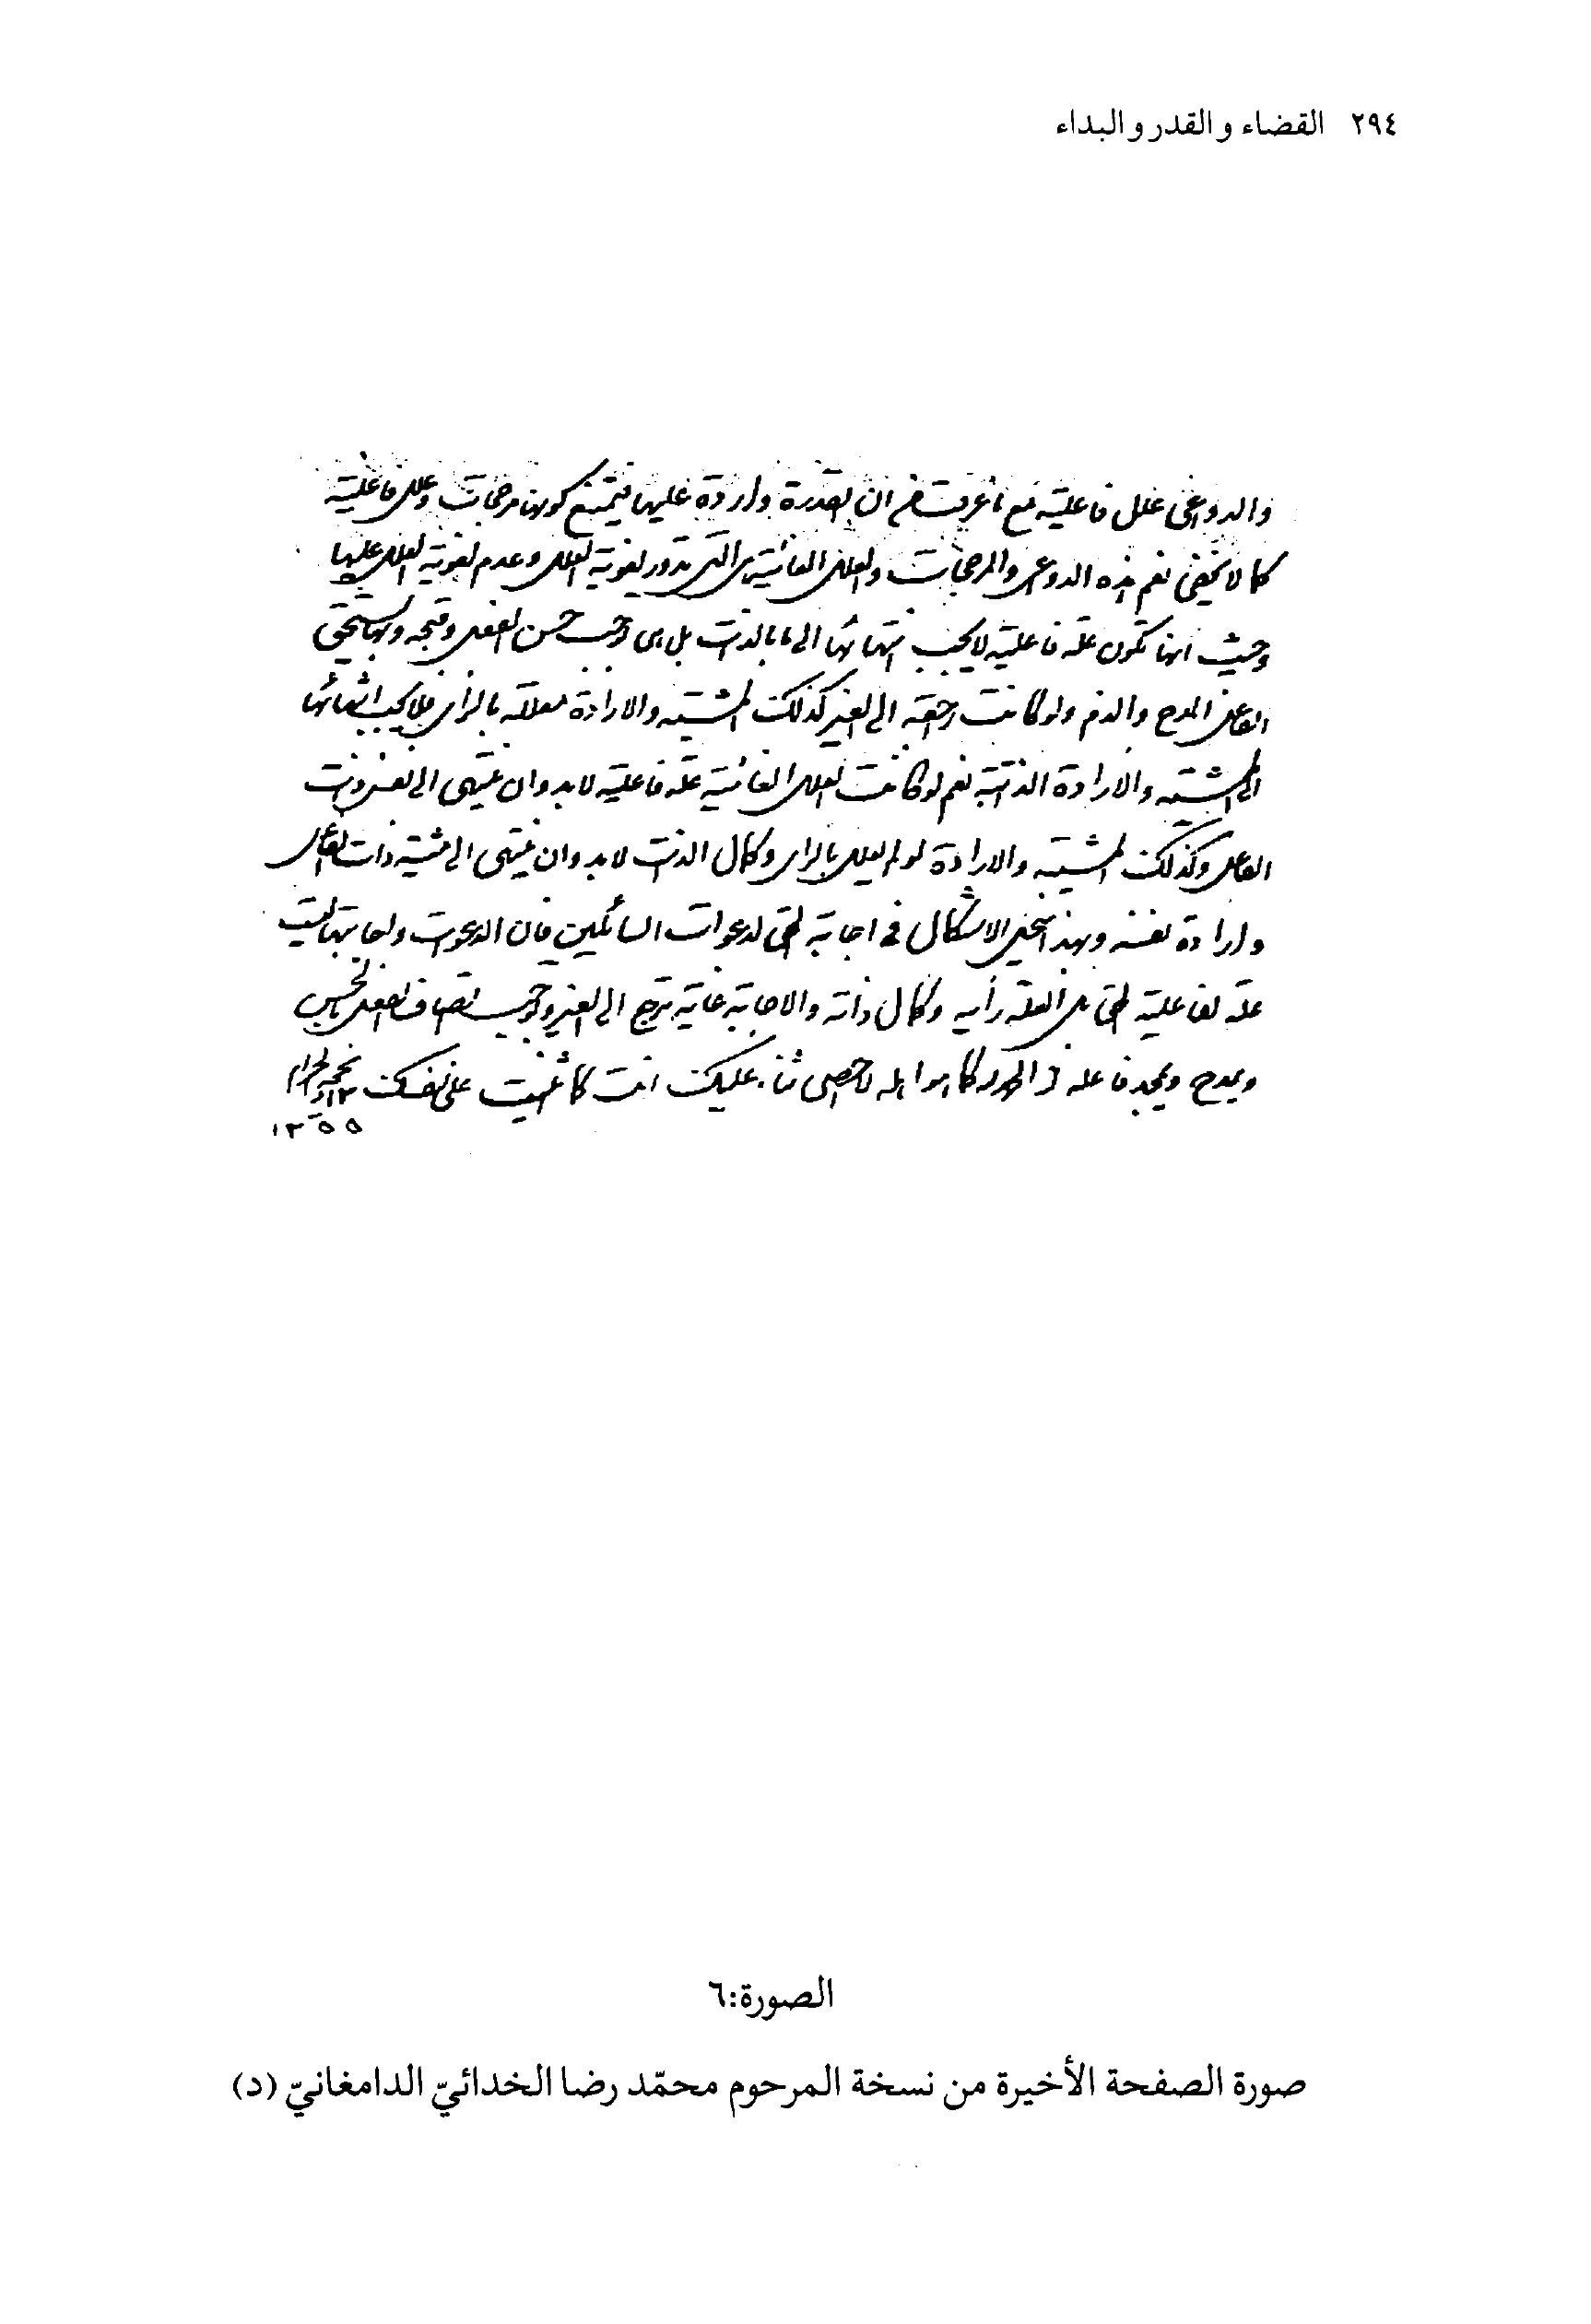 ٢٩٤ القضاء و القدر و البداء
والدواعى علل فاعلية مع ما عرفت من ان القدرة واردة عليها فيمتنع كونها مرجحات وعلل فاعلية
كما لا يخفى نعم هذه الدواعى والمرجحات والعلل الغائية هى التى تدور لغوية الفعل وعدم لغوية الفعل عليها
وحيث انها تكون علة فاعلية لا يجب انتهائها الى ما بالذات بل هى توجب حسن الفعل وقبحه وبها يستحق
الفاعل المدح والذم ولو كانت راجعة الى الغير كذلك المشية والارادة معللة بالراى فلا يجب انتهائها
الى المشية والارادة الذاتية نعم لو كانت العلل الغائية علة فاعلية لابد وان ينتهى الى نفس ذات
الفاعل وكذلك المشية والارادة لو لم يعلل بالراى وكمال الذات لابد وان ينتهى الى مشية ذات الفاعل
وارادة نفسه وبهذا ينحل الاشكال فى اجابة الحق لدعوات السائلين فان الدعوات واجابتها ليست
علة لفاعلية الحق بل العلة رأيه وكمال ذاته والاجابة غاية ترجع الى الغير وتوجب اتصاف الفعل بالحسن
ويمدح ويحمد فاعله الحمد كما هو اهله لا احصى ثناء عليك انت كما اثنيت على نفسك محرم الحرام
١٣٥٥
الصورة:٦
صورة الصفحة الأخيرة من نسخة المرحوم محمّد رضا الخدائيّ الدامغانيّ (د)